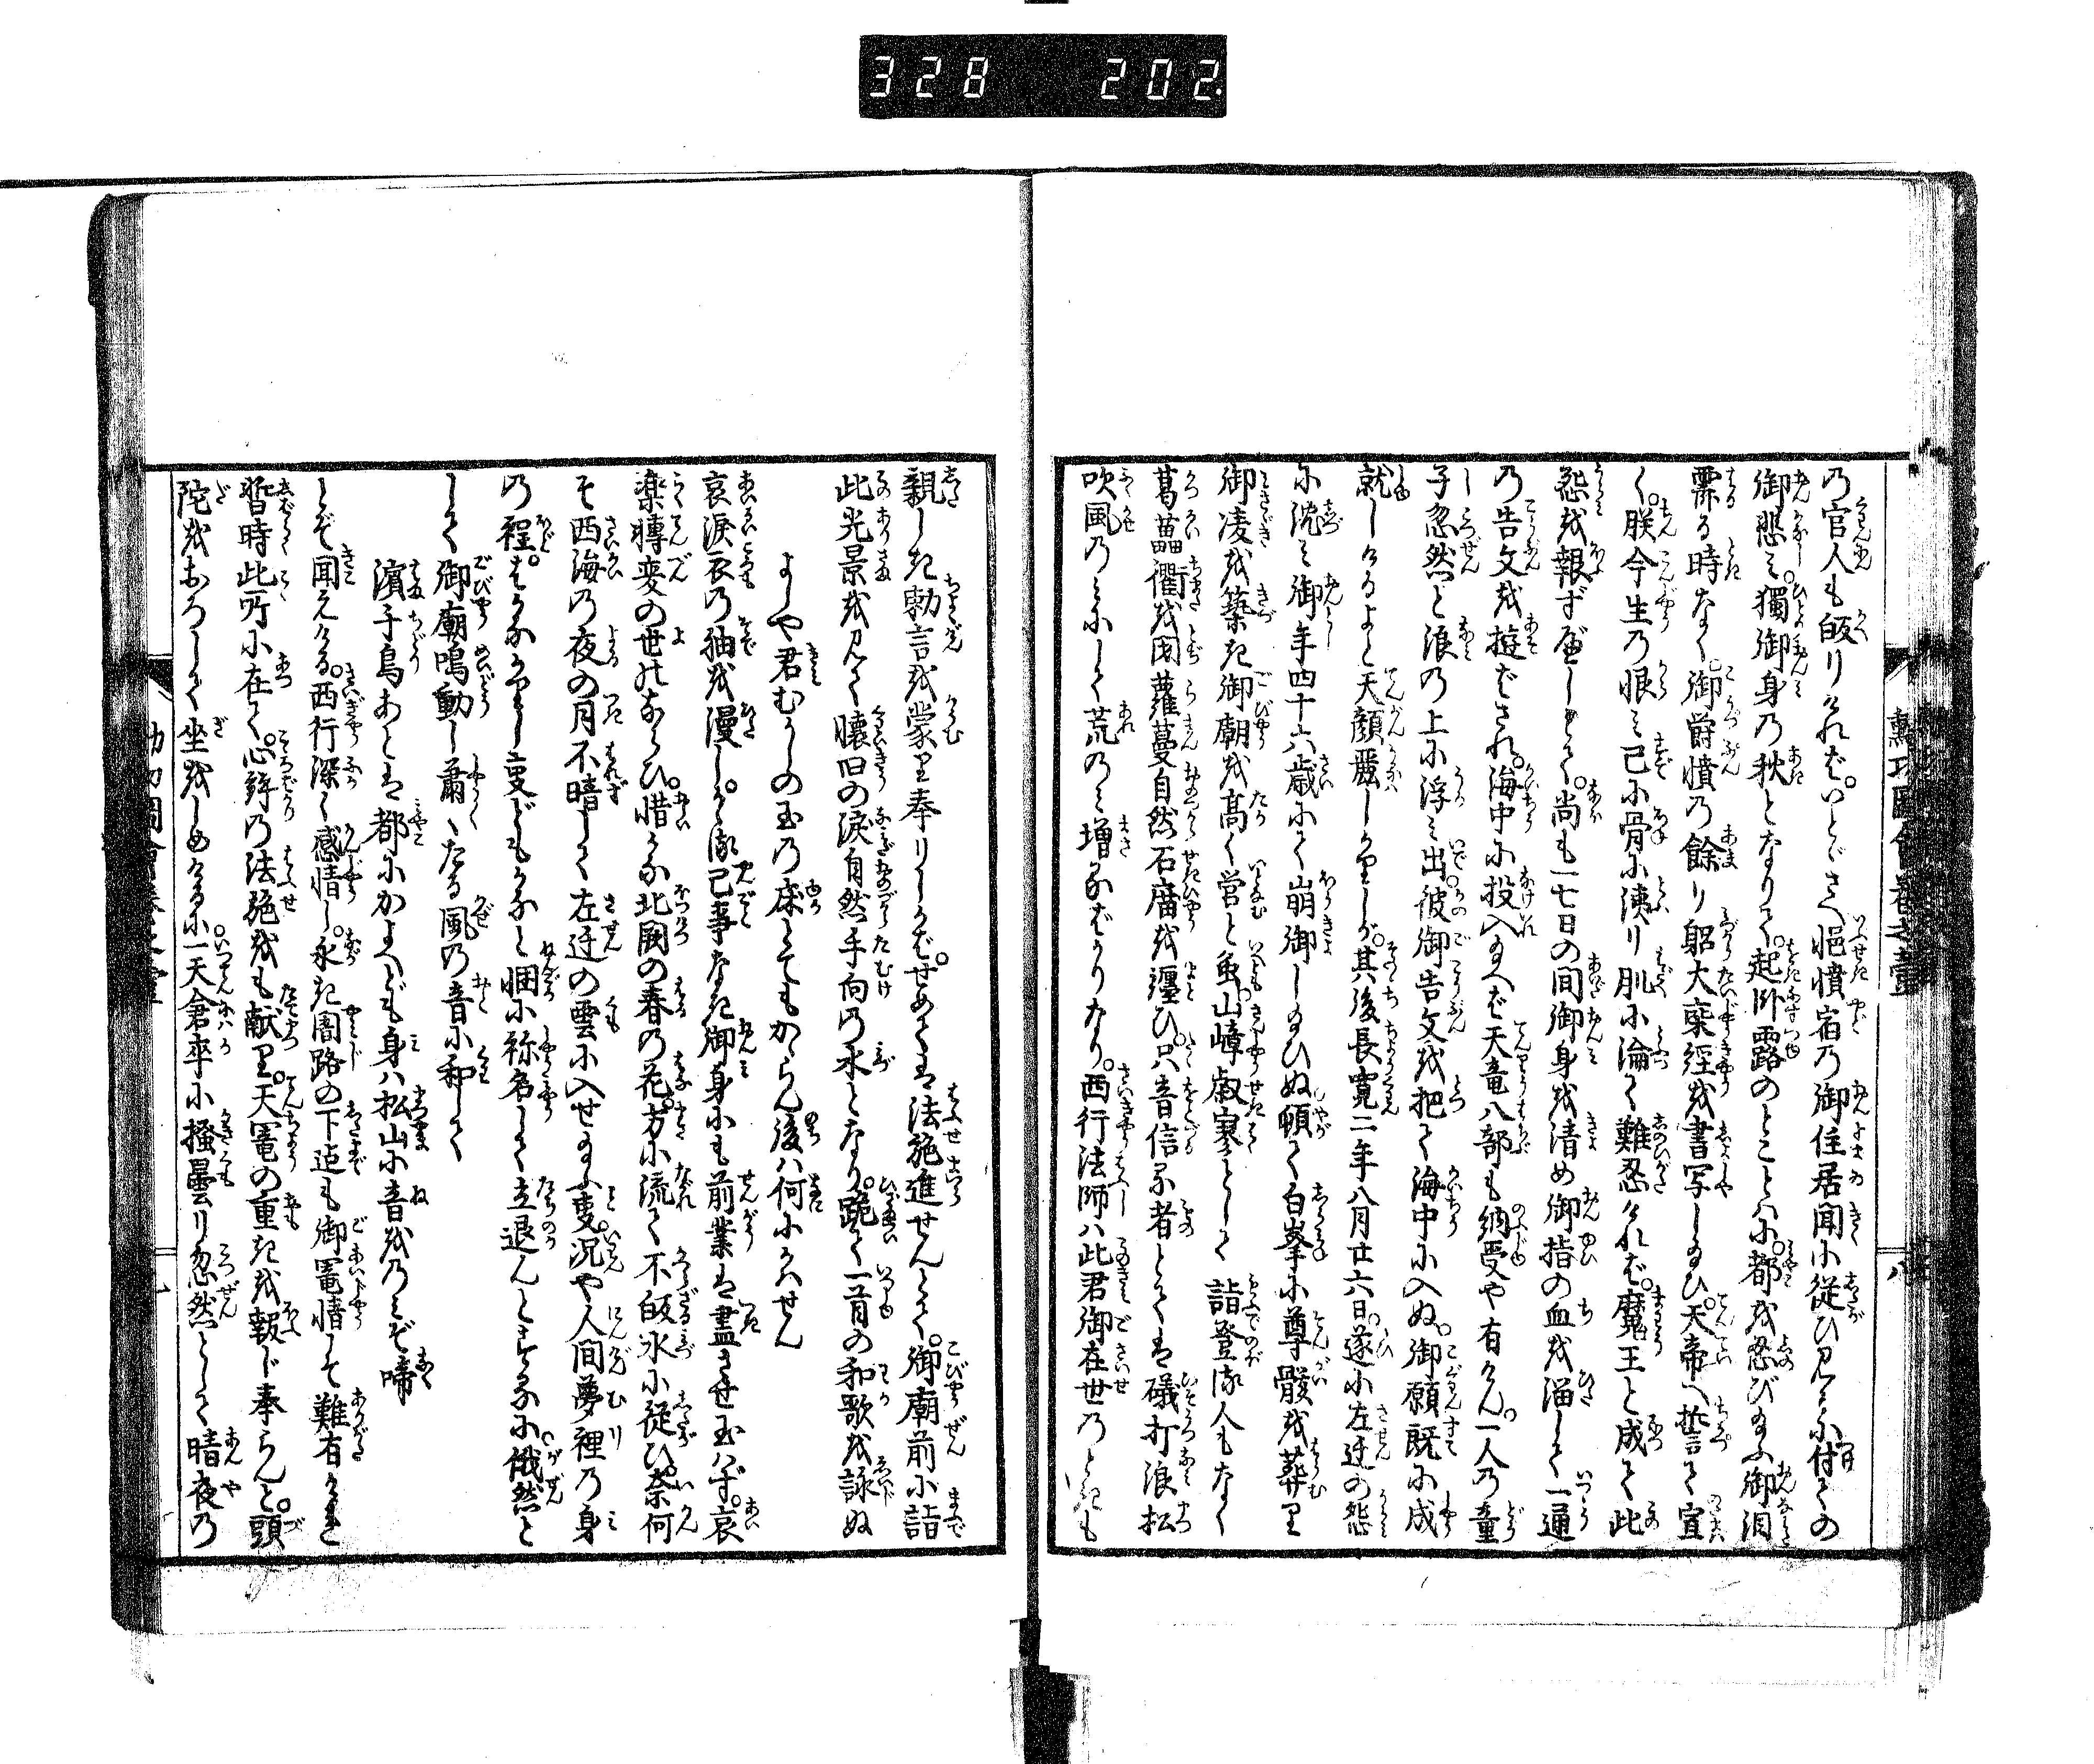 328 202
乃官人も皈りけれバ。いとゞさへ悒憤宿乃御住居聞に從ひ見るに付ての
御悲ミ。獨御身乃秋となりて。起臥露のとことハに。都を忍び玉ふ御泪
霽る時なく。御爵憤乃餘り躬大乗經を書写し玉ひ。天帝へ誓て宣
く。朕今生乃恨ミ已に骨に浹り肌に淪て難忍けれバ。魔王と成て此
怨を報ずべしとて。尚も一七日の間御身を清め御指の血を溜して一通
乃告文を遊ばされ。海中に投入玉へバ天竜八部も納受や有けん。一人乃童
子忽然と浪の上に浮ミ出彼御告文を把て海中に入ぬ。御願既に成
就しけるよと天顔麗しかりしが。其後長寛二年八月廿六日。遂に左迁の怨
に沈ミ御年四十六歳にて崩御し玉ひぬ頓て白峯に尊骸を葬り
御凌を築き御廟を高く営と虽。山嶂寂寞として詣登る人もなく
葛藟衢を閉蘿蔓自然石庿を纏ひ。只音信る者とてハ礒打浪松
吹風乃ミにして荒のミ増るばかりなり。西行法師ハ此君御在世乃ときも
親しき勅言を蒙り奉りしかば。せめてハ法施進せんとて。御廟前に詣
此光景を見て懐旧の涙自然手向乃水となり。跪て一首の和歌を詠ぬ
よしや君むかしの玉乃床とてもかゝらん後ハ何にかハせん
哀涙衣乃袖を漫し。かゝる已事なき御身にも前業ハ盡させ玉ハず。哀
楽轉変の世のならひ。惜かな北闕の春の花。方に流て不皈水に從ひ。奈何
そ西海乃夜の月不晴して左迁の雲に入せ玉ふ叓。况や人間夢裡乃身
乃程。はかなかりし叓どもかなと悃に称名して立退んとするに。俄然と
して御廟鳴動し肅々たる風乃音に和して
濱千鳥あとハ都にかよへども身ハ松山に音をのミぞ啼
とぞ聞えける。西行深く感情し。永き闇路の下迠も御寃情して難有けれと
暫時此所に在て。心許乃法施をも献り。天寃の重きを報じ奉らんと。頭
陀をおろして坐をしめけるに。一天倉卒に掻曇り忽然として暗夜乃